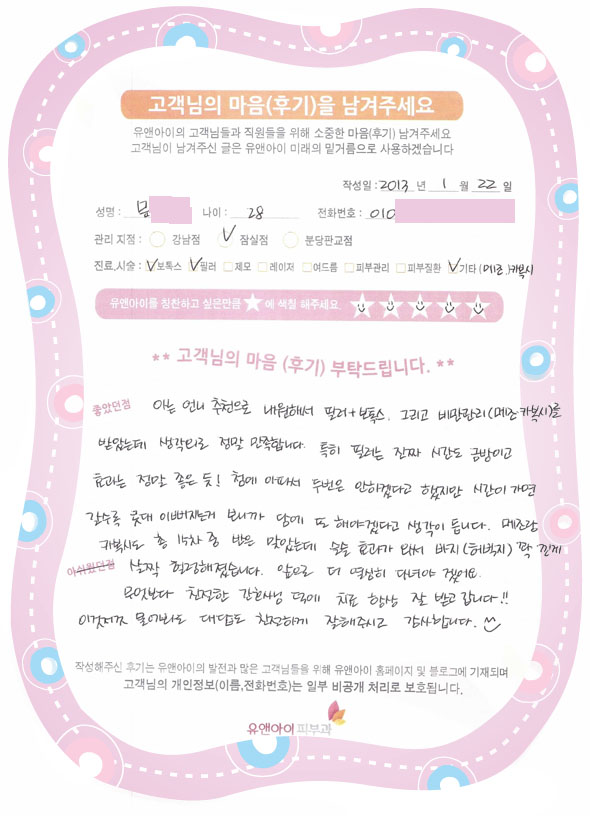 고객님의 마음(후기)을 남겨주세요
유앤아이의 고객님들과 직원들을 위해 소중한 마음(후기) 남겨주세요
고객님이 남겨주신 글은 유앤아이 미래의 밑거름으로 사용하겠습니다
작성일 : 2013 년 1 월 22 일
성명 : 문 나이 : 28 전화번호 : 010
관리 지점 : 강남점 잠실점 분당판교점
진료,시술 : 보톡스 필러 제모 레이저 여드름 피부관리 피부질환 기타 (메조.)카복시
유앤아이를 칭찬하고 싶은만큼 ★에 색칠 해주세요
** 고객님의 마음 (후기) 부탁드립니다. **
좋았던점 아는 언니 추천으로 내원해서 필러+보톡스, 그리고 비만관리(메조·카복시)를
받았는데 생각외로 정말 만족합니다. 특히 필러는 진짜 시간도 금방이고
효과는 정말 좋은 듯! 첨에 아파서 두번은 안하겠다고 했지만 시간이 가면
갈수록 콧대 이뻐지는거 보니까 담에 또 해야겠다고 생각이 듭니다. 메조랑
카복시도 총 15차 중 반은 맞았는데 슬슬 효과가 와서 바지(허벅지) 꽉 낀게
아쉬웠던점 살짝 헐렁해졌습니다. 앞으로 더 열심히 다녀야 겠어요.
무엇보다 친절한 간호사님 덕에 치료 항상 잘 받고 갑니다!!
이것저것 물어봐도 대답도 친절하게 잘해주시고 감사합니다.
작성해주신 후기는 유앤아이의 발전과 많은 고객님들을 위해 유앤아이 홈페이지 및 블로그에 기재되며
고객님의 개인정보(이름,전화번호)는 일부 비공개 처리로 보호됩니다.
유앤아이피부과